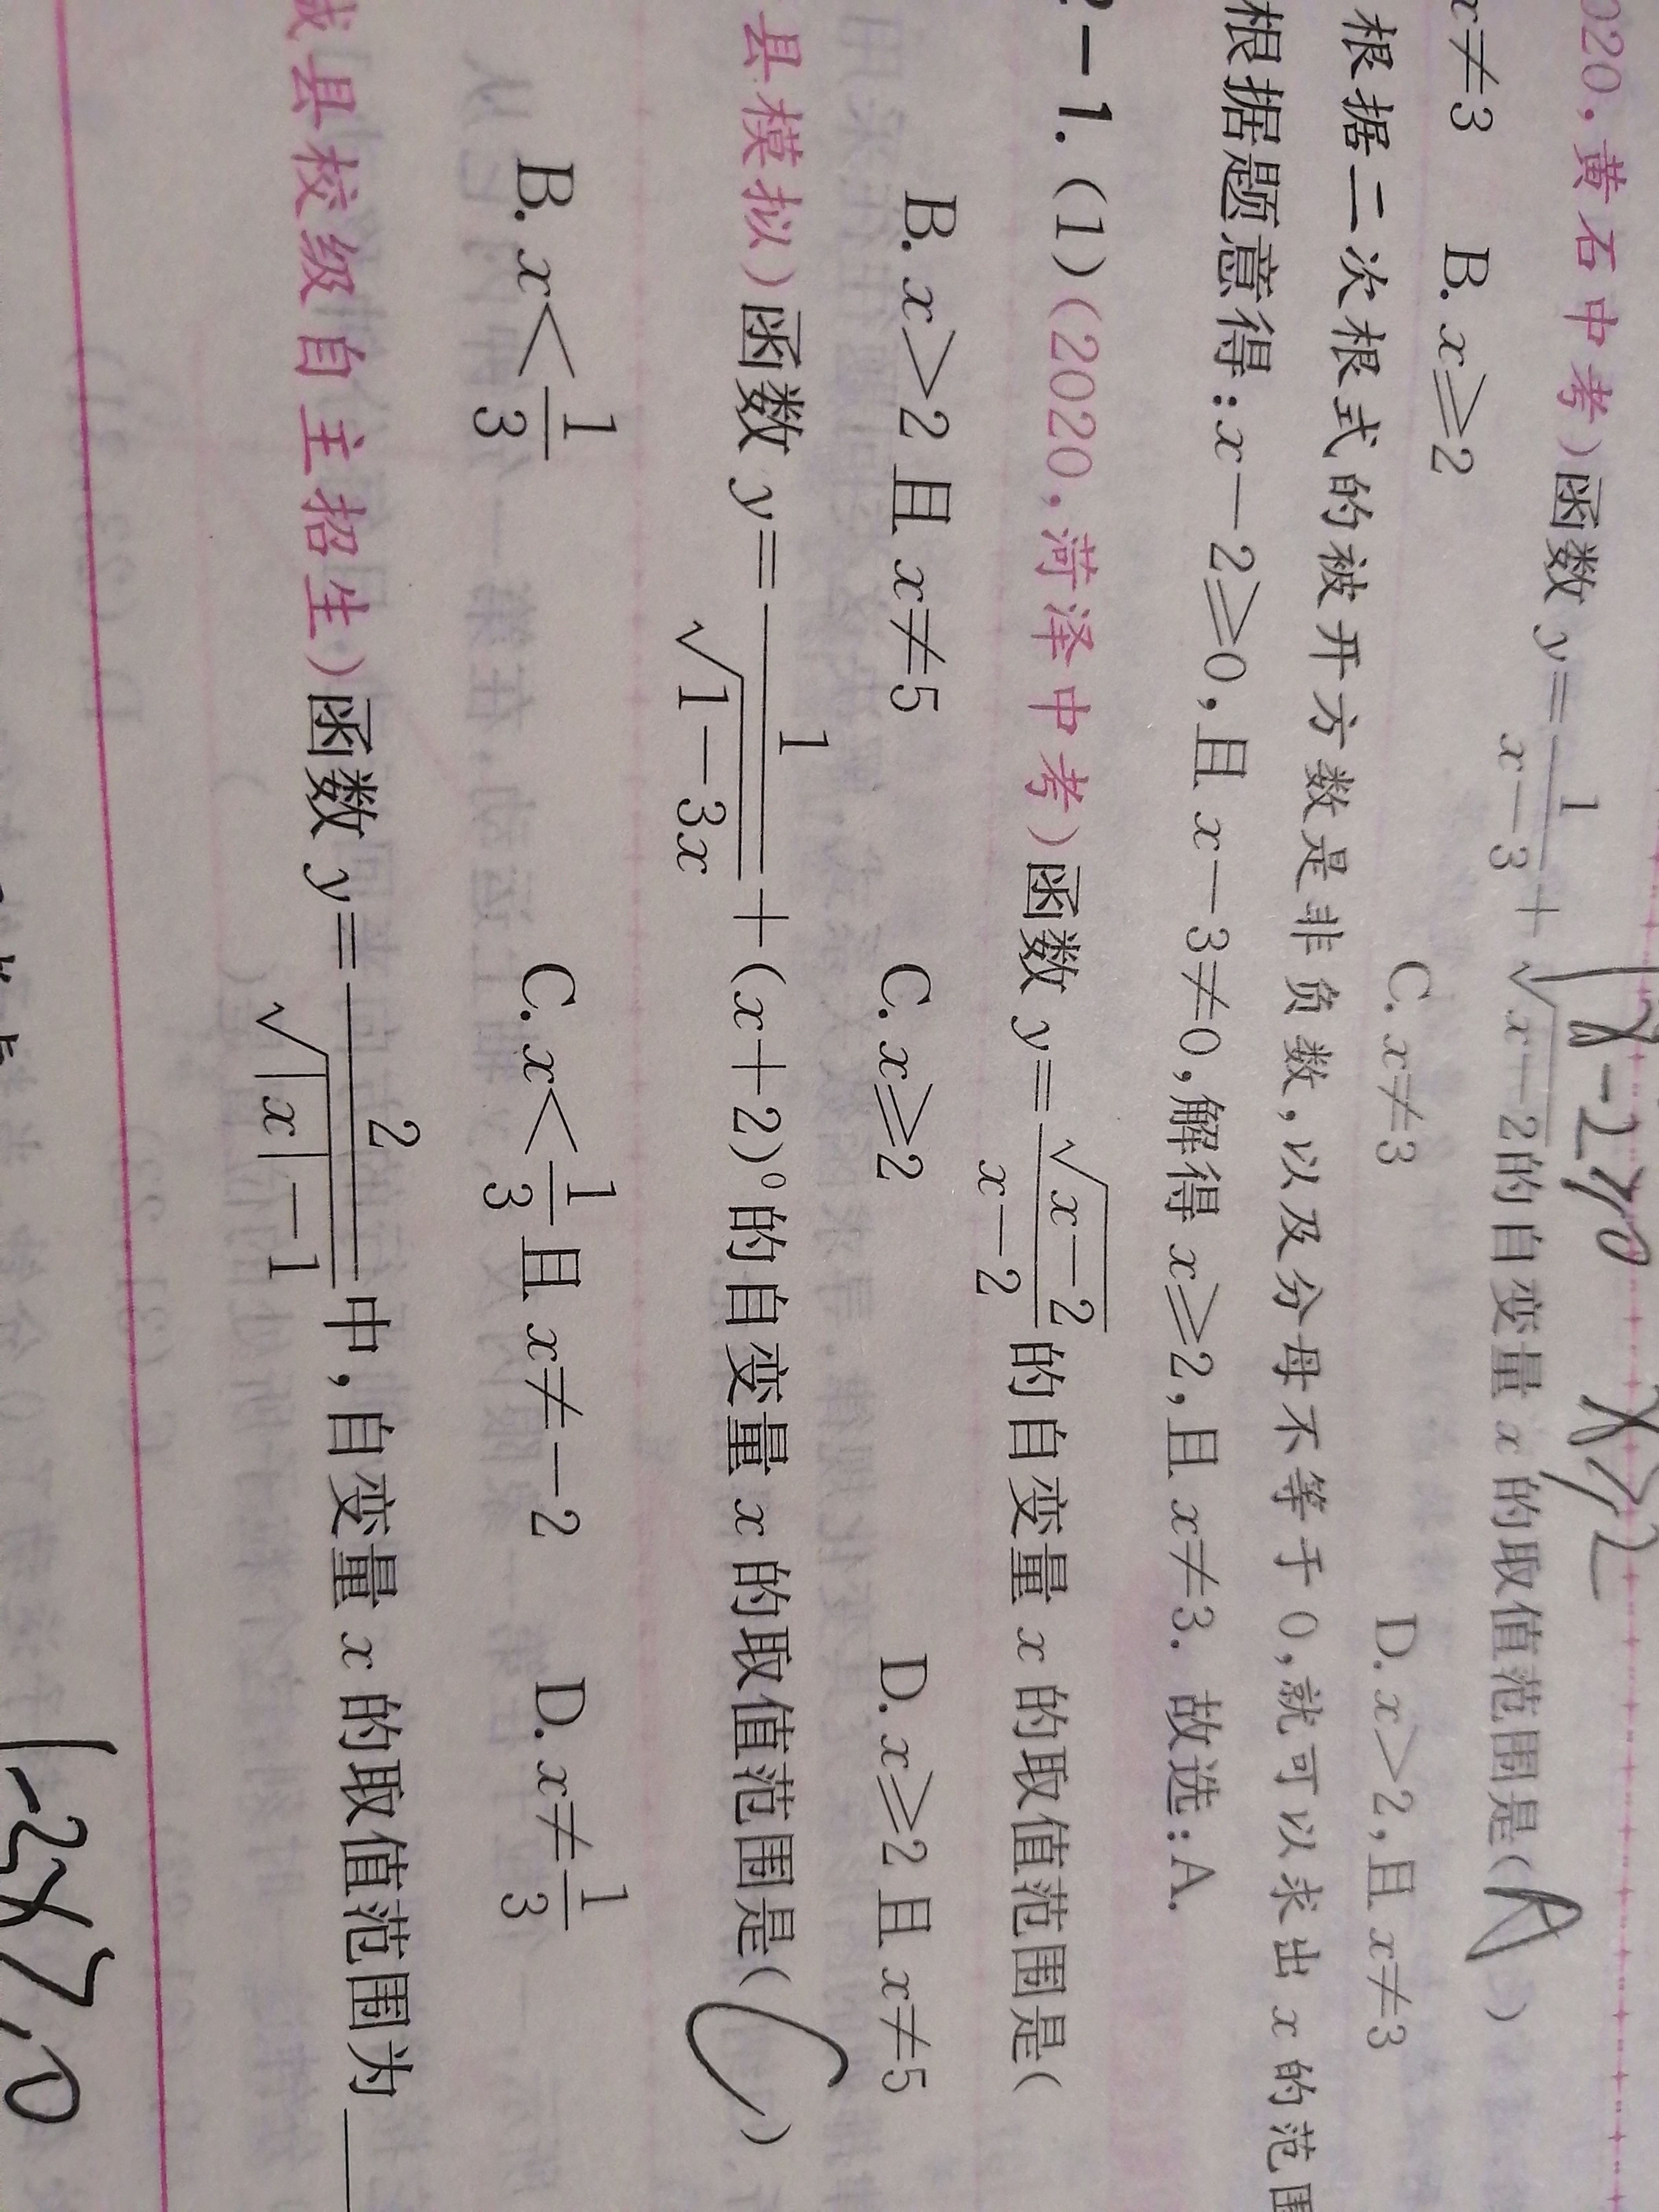 020,黄石中考)函数 y=1/(x-3)+√(x-2)的自变量 x 的取值范围是( A )
x-2≥0 x≥2
x≠3 B. x≥2 C. x≠3 D. x>2,且 x≠3
根据二次根式的被开方数是非负数,以及分母不等于0,就可以求出 x 的范围
根据题意得:x-2≥0,且 x-3≠0,解得 x≥2,且 x≠3. 故选:A.
-1. (1)(2020,菏泽中考)函数 y=√(x-2)/(x-2)的自变量 x 的取值范围是(
B. x>2 且 x≠5 C. x≥2 D. x≥2 且 x≠5
县模拟)函数 y=1/√(1-3x)+(x+2)⁰的自变量 x 的取值范围是( C )
B. x<1/3 C. x<1/3且 x≠-2 D. x≠1/3
县校级自主招生)函数 y=2/√(|x|-1)中,自变量 x 的取值范围为